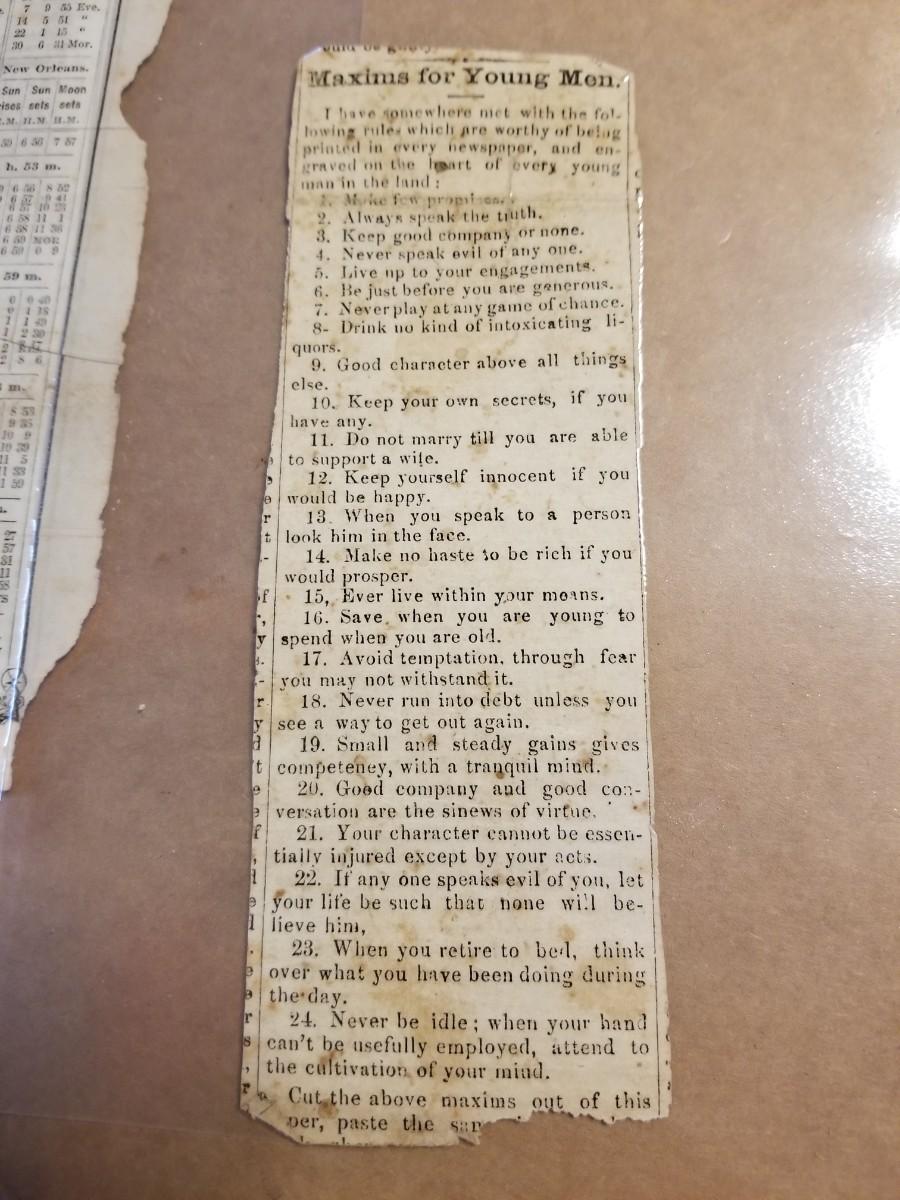 7 9 55 Eve.
14 5 51 "
22 1 15 "
30 6 31 Mor.
New Orleans.
Sun Sun Moon
rises sets sets
H.M. H.M.
6 56 7 57
h. 53 m.
6 56 8 52
6 57 9 41
6 57 10 23
6 58 11 1
6 58 11 36
6 59 MOR
6 59 0 9
59 m.
Maxims for Young Men.
I have somewhere met with the fol-
lowing rules which are worthy of being
printed in every newspaper, and en-
graved on the heart of every young
man in the land:
1. Make few promises.
2. Always speak the truth.
3. Keep good company or none.
4. Never speak evil of any one.
5. Live up to your engagements.
6. Be just before you are generous.
7. Never play at any game of chance.
8- Drink no kind of intoxicating li-
quors.
9. Good character above all things
else.
10. Keep your own secrets, if you
have any.
11. Do not marry till you are able
to support a wife.
12. Keep yourself innocent if you
would be happy.
13. When you speak to a person
look him in the face.
14. Make no haste to be rich if you
would prosper.
15, Ever live within your means.
16. Save when you are young to
spend when you are old.
17. Avoid temptation, through fear
you may not withstand it.
18. Never run into debt unless you
see a way to get out again.
19. Small and steady gains gives
competency, with a tranquil mind.
20. Good company and good con-
versation are the sinews of virtue.
21. Your character cannot be essen-
tially injured except by your acts.
22. If any one speaks evil of you, let
your life be such that none will be-
lieve him,
23. When you retire to bed, think
over what you have been doing during
the day.
24. Never be idle; when your hand
can't be usefully employed, attend to
the cultivation of your mind.
Cut the above maxims out of this
per, paste the